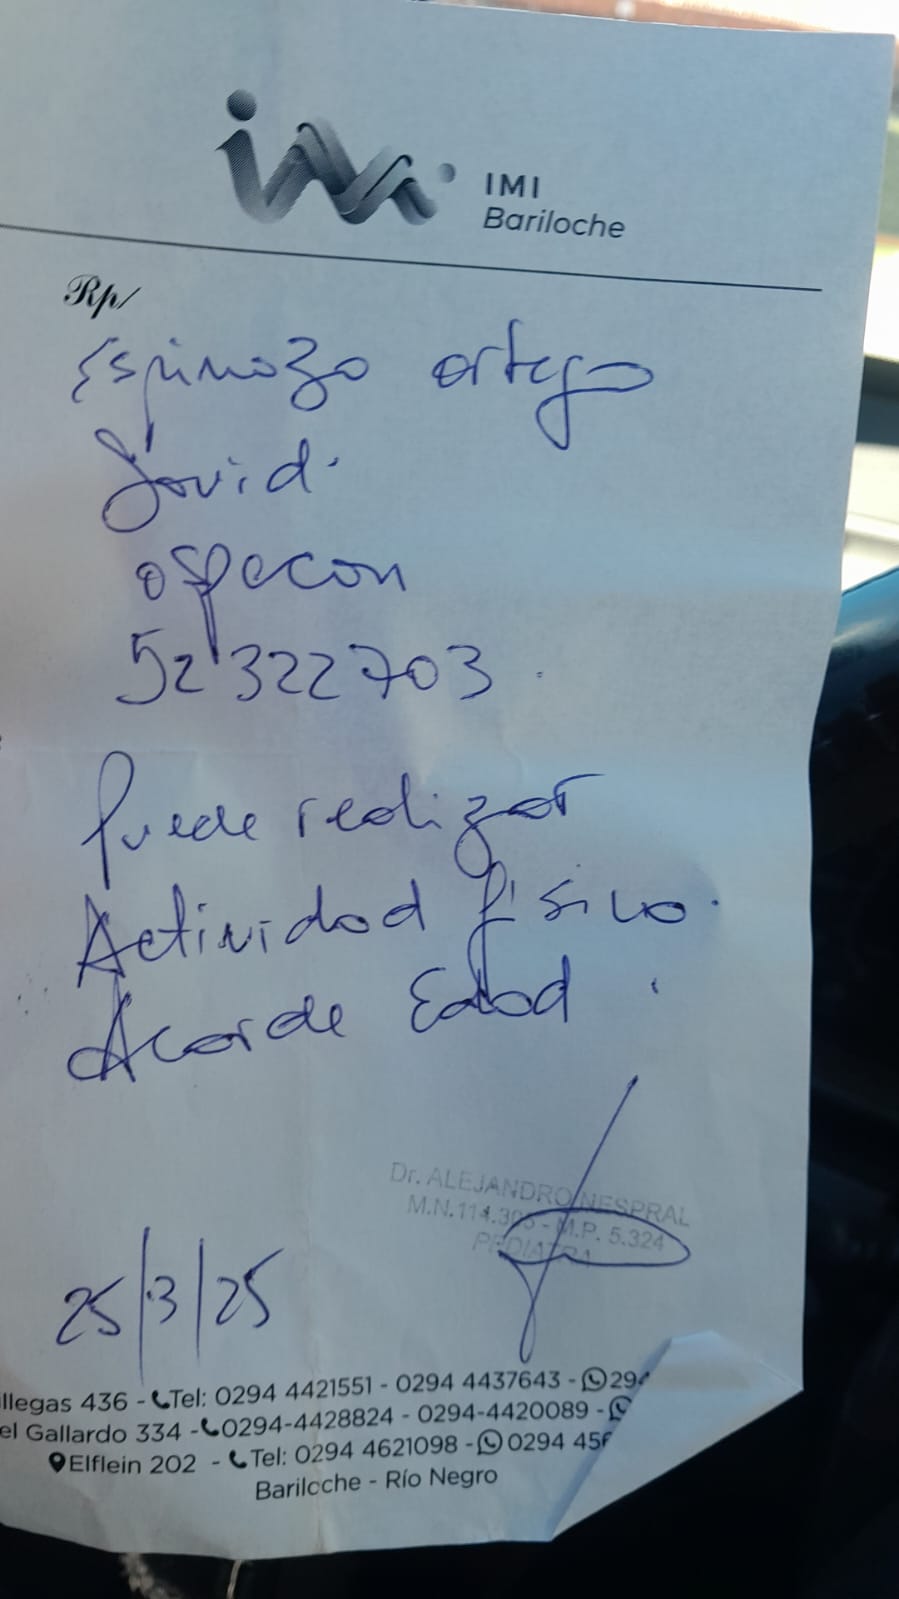 IMI
Bariloche
Rp/
Espinoza ortega
David.
ospecon
52322703.
Puede realizar
Actividad física.
Acorde Edad.
Dr. ALEJANDRO NESPRAL
M.N. - M.P. 5.324
PEDIATRA
25/3/25
llegas 436 - Tel: 0294 4421551 - 0294 4437643 - 294
el Gallardo 334 - 0294-4428824 - 0294-4420089 -
Elflein 202 - Tel: 0294 4621098 - 0294 456
Bariloche - Río Negro